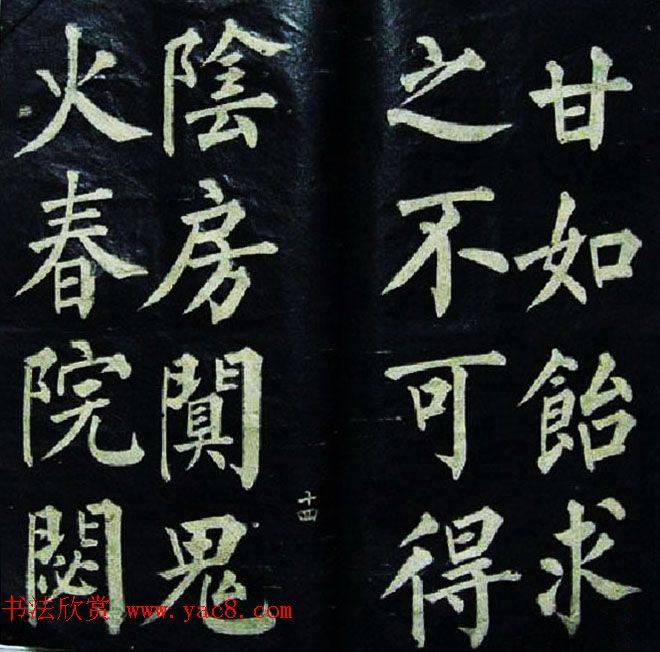 甘如飴求
之不可得
十四
陰房闃鬼
火春院閟
书法欣赏 www.yac8.com